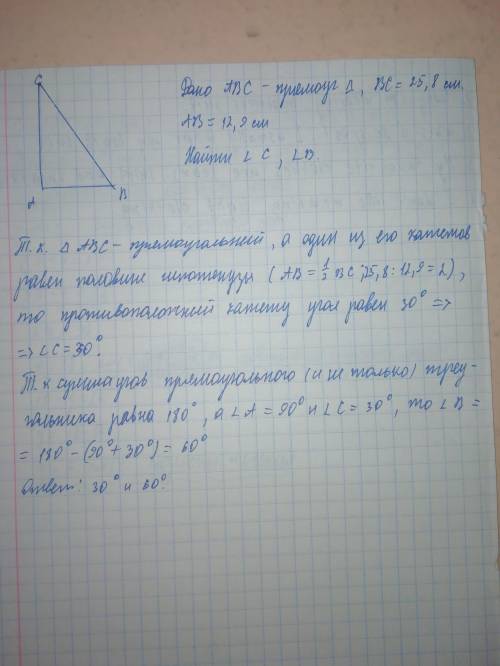 C
Дано ABC - прямоуг Δ, BC = 25,8 см.
AB = 12,9 см
Найти ∠ C, ∠B.
A B
Т. к. Δ ABC - прямоугольный, а один из его катетов
равен половине гипотенузы (AB = 1/2 BC, 25,8 : 12,9 = 2),
то противоположный катету угол равен 30° =>
=> ∠C = 30°.
Т. к сумма угов прямоугольного (и не только) треу-
гольника равна 180°, а ∠A = 90° и ∠C = 30°, то ∠B =
= 180° - (90° + 30°) = 60°
Ответ: 30° и 60°.